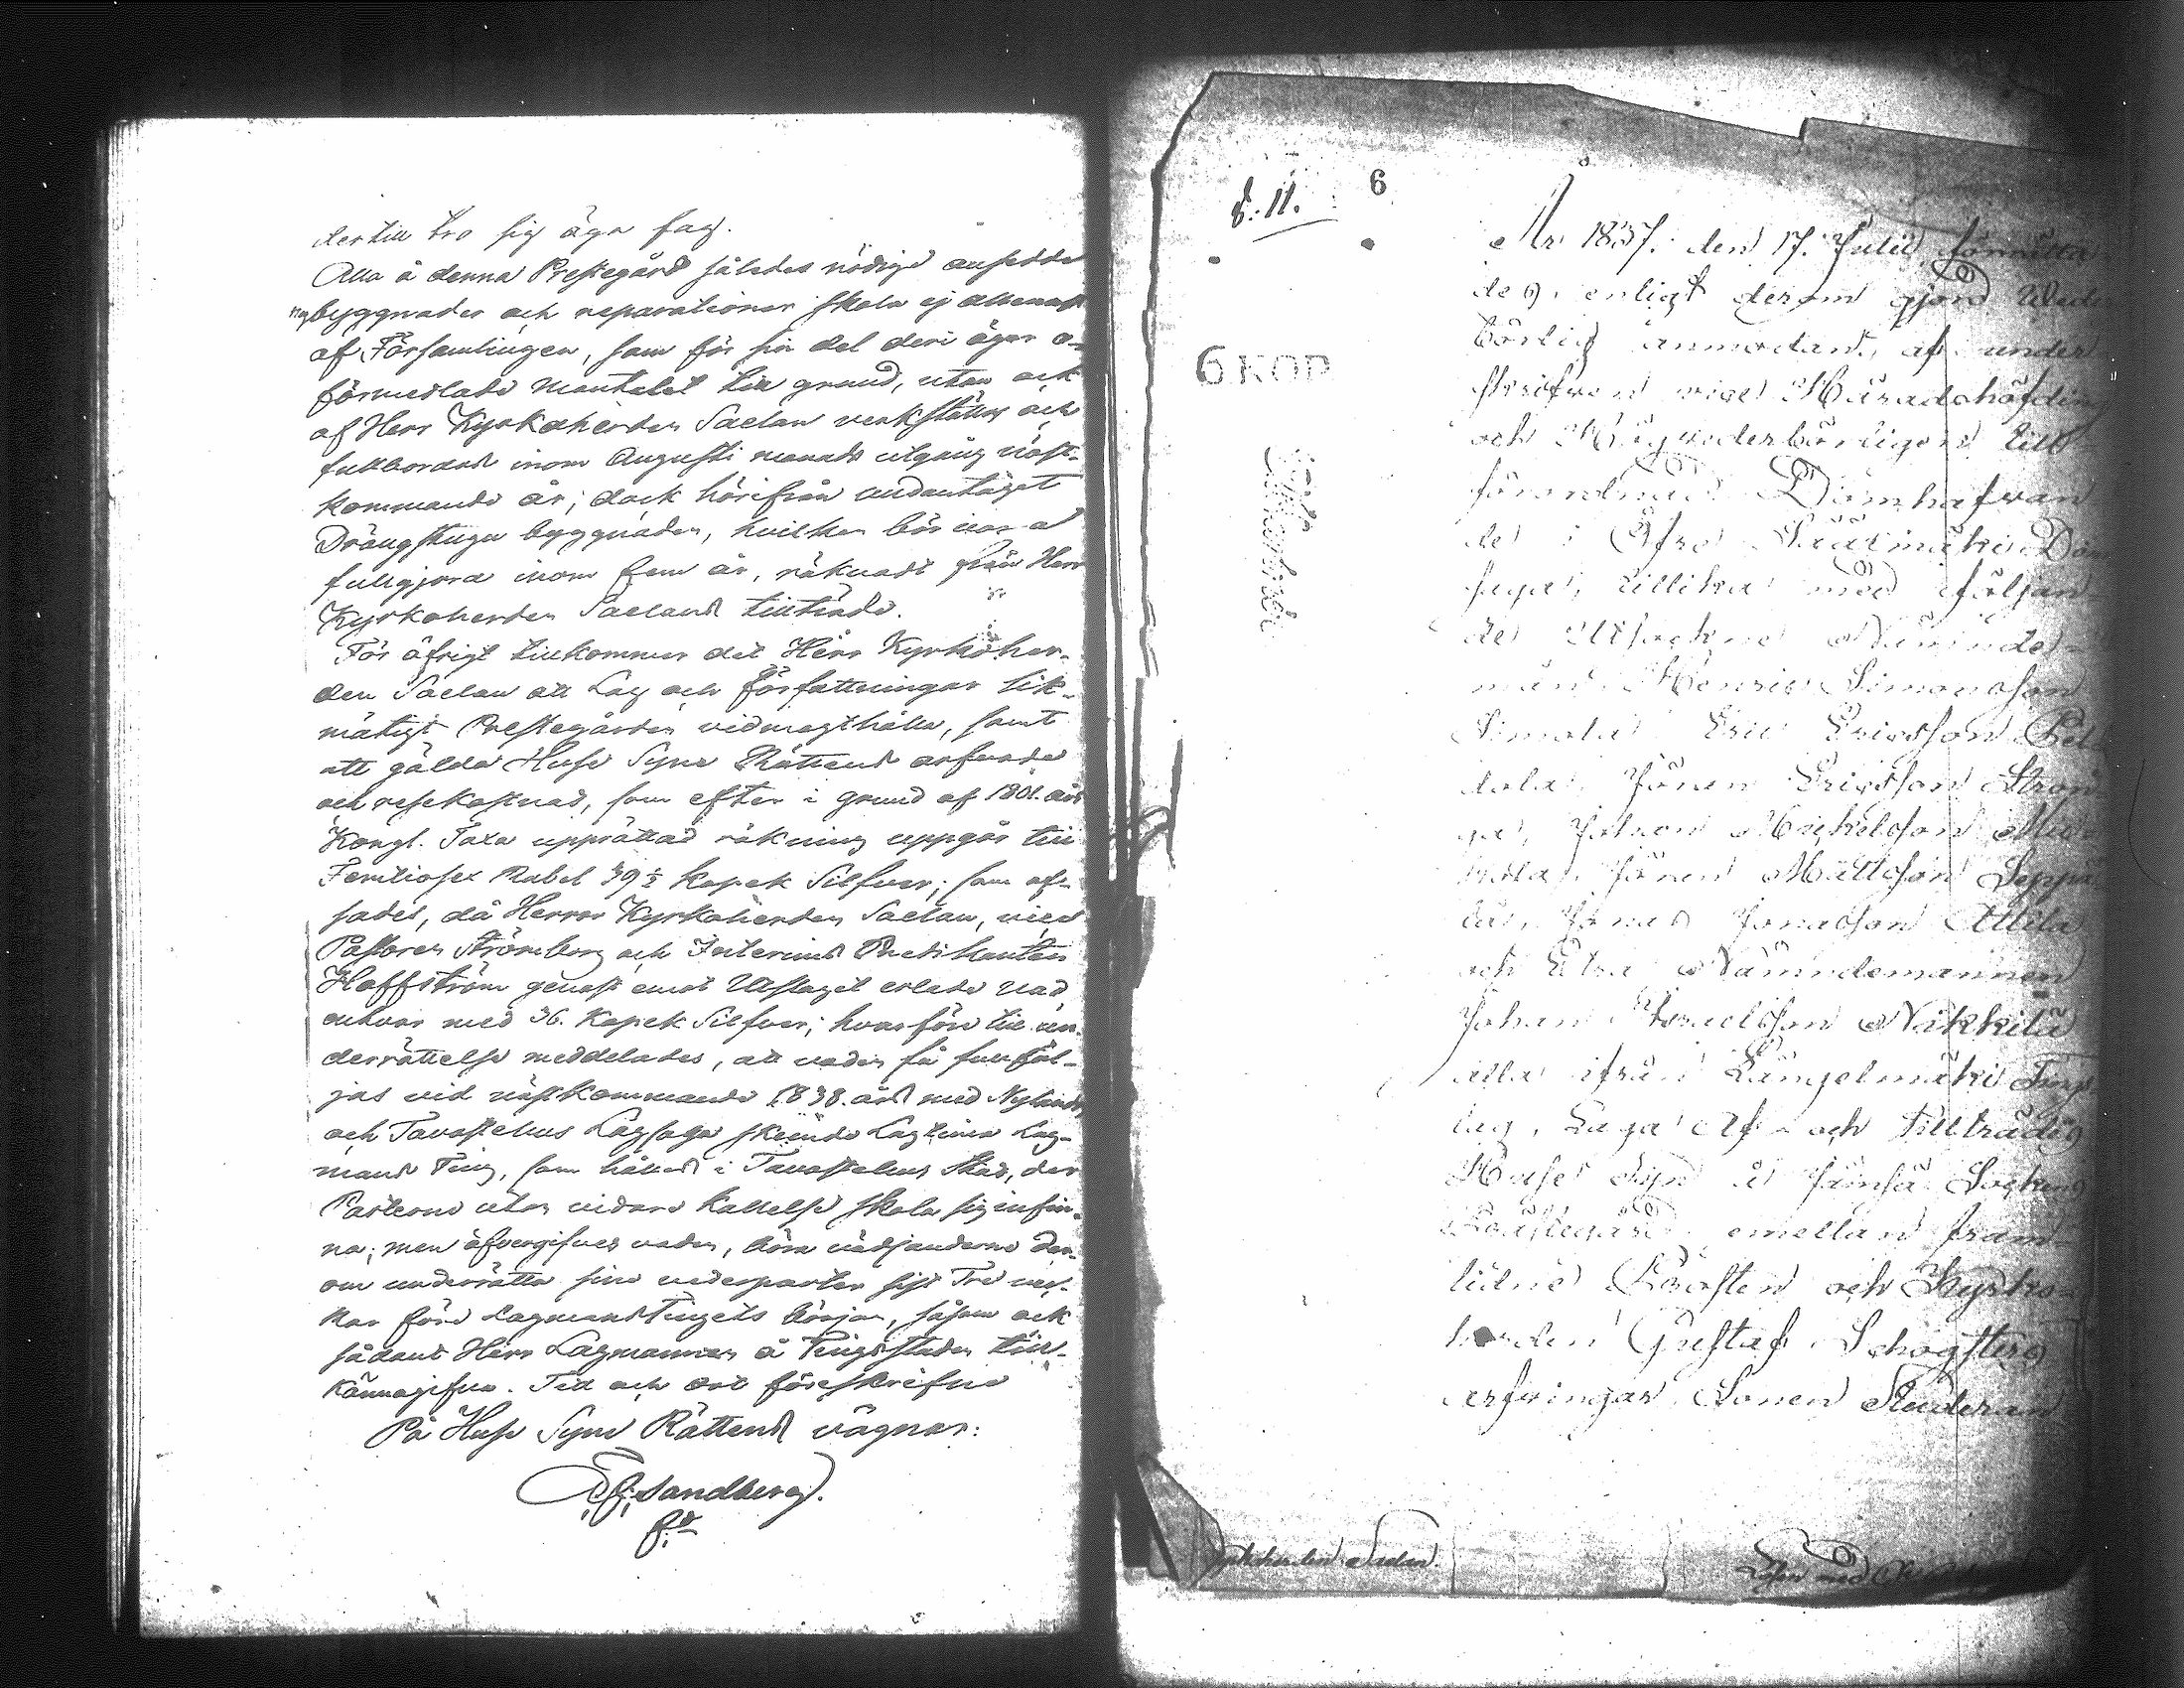 dertill tro sig äga fog.
Alla å denna Prestegård således nödige ansedde
nybyggnader och reparationer skola ej allenast
af Församlingen, som för sin del deri äger o-
förmedlade mantalet till grund, utan ock
af Herr Kyrkoherden Saelan verkställas och
fullbordas inom Augusti månads utgång näst-
kommande år; dock härifrån undantaget
Drängstugu byggnaden, hvilken bör vara
fullgjord inom fem år, räknade från Herr
Kyrkoherden Saelans tillträde.
För öfrigt tillkommer det Herr Kyrkoher-
den Saelan att Lag och Författningar lik-
mätigt Prestegården vidmagthålla, samt
att gälda Huse Syns Rättens arfvode
och resekostnad, som efter i grund af 1801. års
Kongl. Taxa upprättad räkning uppgår till
Femtiosex Rubel 39½ Kopek Silfver; som af-
sades, då Herrar Kyrkoherden Saelan, vice
Pastoren Strömborg och Interims Predikanten
Hoffström genast emot Utslaget erlade vad
enhvar med 36. Kopek Silfver; hvarföre till un-
derrättelse meddelades, att vaden få fullföl-
jas vid nästkommande 1838. års med Nylands
och Tavastehus Lagsaga skeende Lagtima Lag-
mans Ting, som hålles i Tavastehus Stad, der
Parterne utan vidare kallelse skola sig infin-
na; men öfvergifves vaden, böra vädjanderne der-
om underrätta sine vederparter sist Tre vec-
kor före Lagmanstingets början, såsom ock
sådant Herr Lagmannen å Tingsstaden till-
kännagifva. Tid och ort föreskrefne
På Huse Syns Rättens vägnar:
Sandberg.
§. 11.
6
6 KOP
År 1837. den 17. Julii, förrätta-
des, enligt derom gjord Wed-
börlig anmodan, af under-
skrifven vice Häradshöfding
och Höguederbörligen till
förordnad Domhafvan-
de i Öfre Säätmäki Dom-
saga, tillika med följan-
de Utsockne Nämnde-
män, Henric Simonsson
Simola Eric Ericsson
Jören Ericsson
Johan Michelsson
Jören Mattsson Seppä-
lä, Jonas Jonasson Attila
och Extra Nämndemannen
Johan Israelsson Näkkilä
alla ifrån Längelmäki Tings-
lag, Laga Af- och Tillträdes
Huse Syn å Jämsä Sockens
Prästegård, emellan fram-
lidne Prosten och Kyrko-
herden Gustaf
arfvingar Sonen Studeran-
Kyrkoherden Saelan.
Lösen med